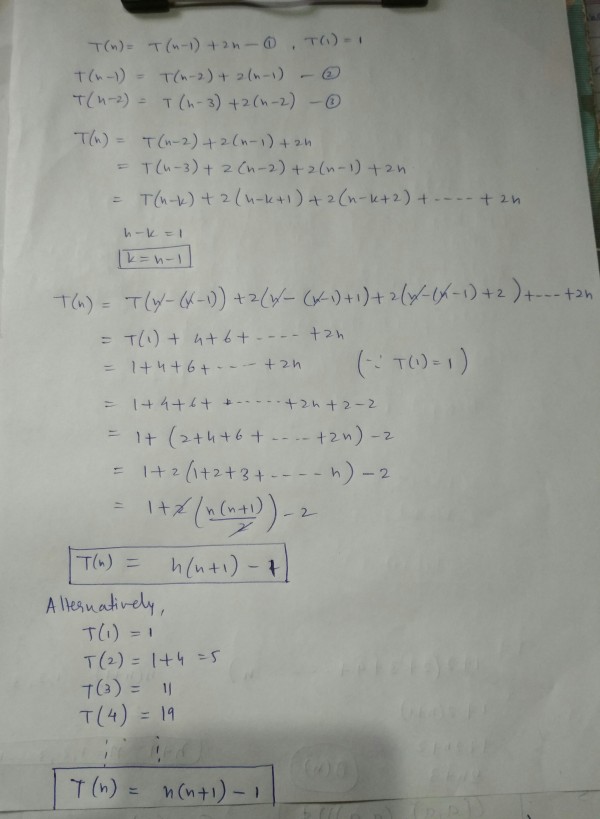 T(n) = T(n-1) + 2n — ①, T(1) = 1
T(n-1) = T(n-2) + 2(n-1) — ②
T(n-2) = T(n-3) + 2(n-2) — ③
T(n) = T(n-2) + 2(n-1) + 2n
= T(n-3) + 2(n-2) + 2(n-1) + 2n
= T(n-k) + 2(n-k+1) + 2(n-k+2) + ---- + 2n
n-k = 1
k = n-1
T(n) = T(n-(n-1)) + 2(n-(n-1)+1) + 2(n-(n-1)+2) + --- + 2n
= T(1) + 4+6+ ---- +2n
= 1+4+6+ ---- +2n (∵ T(1) = 1)
= 1+4+6+ ------ +2n+2-2
= 1+ (2+4+6+ ---- +2n) -2
= 1+2(1+2+3+ ----- n) -2
= 1+2(n(n+1)/2) -2
T(n) = n(n+1) - 1
Alternatively,
T(1) = 1
T(2) = 1+4 =5
T(3) = 11
T(4) = 19
T(n) = n(n+1) - 1